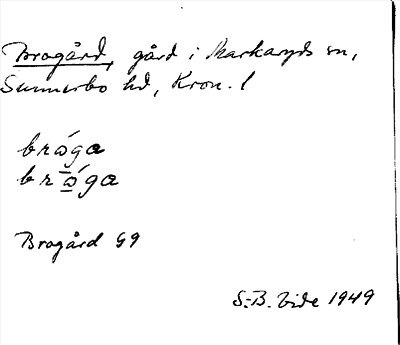 Brogård, gård i Markaryds sn,
Sunnerbo hd, Kron. l
brǿga
brω̲̄́ga
Brogård G9
S.-B. Vide 1949